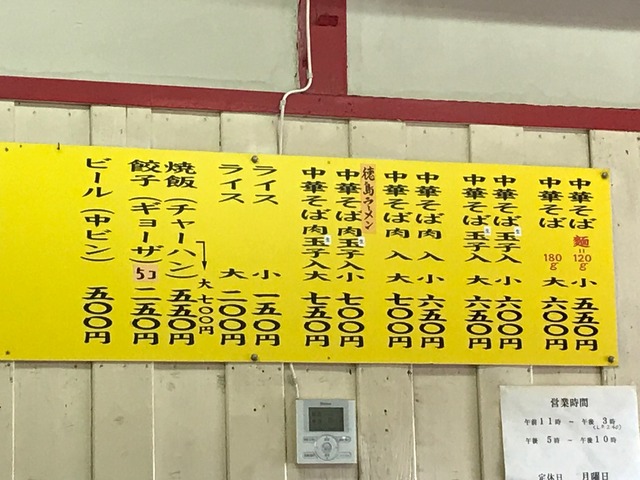 中華そば 麺=120g 小 五五〇円
中華そば 180g 大 六〇〇円
中華そば玉子入 小 六〇〇円
中華そば玉子入 大 六五〇円
中華そば肉 入 小 六五〇円
中華そば肉 入 大 七〇〇円
徳島ラーメン
中華そば肉玉子入小 七〇〇円
中華そば肉玉子入大 七五〇円
ライス 小 一五〇円
ライス 大 二〇〇円
大 七〇〇円
焼飯(チャーハン) 五五〇円
餃子(ギョーザ) 5コ 二五〇円
ビール(中ビン) 五〇〇円
営業時間
午前11時〜午後3時
午後5時〜午後10時
定休日 月曜日